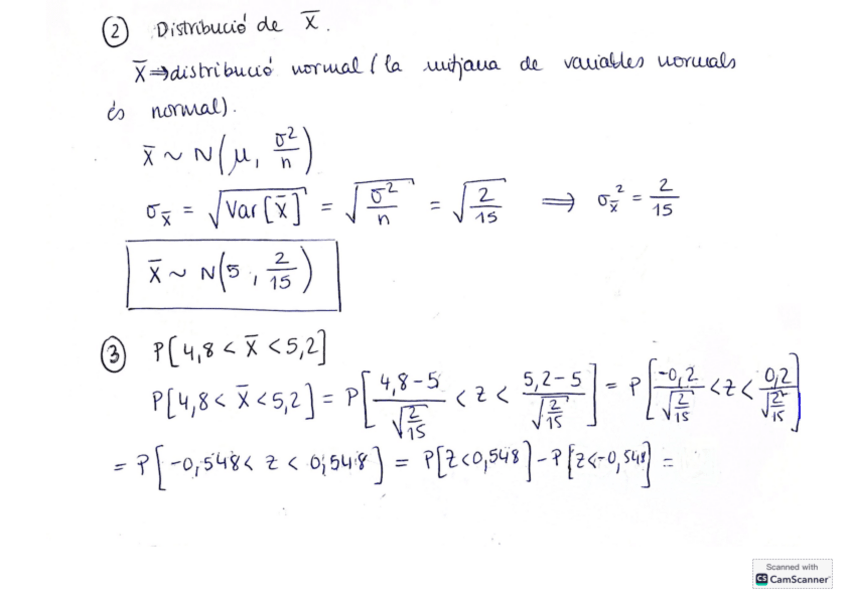 ② Distribució de X̄.
X̄ ⇒ distribució normal (la mitjana de variables normals
és normal).
X̄ ~ N(μ, σ²/n)
σ_X̄ = √Var[X̄] = √(σ²/n) = √(2/15) ⟹ σ_X̄² = 2/15
X̄ ~ N(5, 2/15)
③ P[4,8 < X̄ < 5,2]
P[4,8 < X̄ < 5,2] = P[(4,8-5)/√(2/15) < Z < (5,2-5)/√(2/15)] = P[-0,2/√(2/15) < Z < 0,2/√(2/15)]
= P[-0,548 < Z < 0,548] = P[Z<0,548] - P[Z<-0,548] =
Scanned with
CS CamScanner